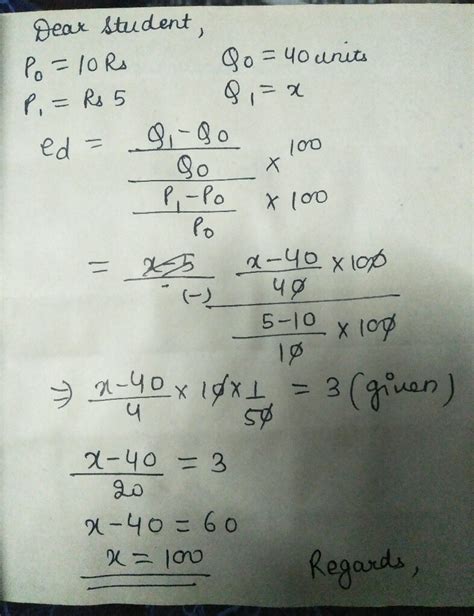 Dear Student,
P0 = 10 Rs Q0 = 40 units
P1 = Rs 5 Q1 = x
ed = Q1 - Q0 / Q0 × 100
P1 - P0 / P0 × 100
= x-5 / (-) x-40 / 40 × 100
5-10 / 10 × 100
⇒ x-40 / 4 × 10 × 1 / 50 = 3 (given)
x-40 / 20 = 3
x - 40 = 60
x = 100
Regards,